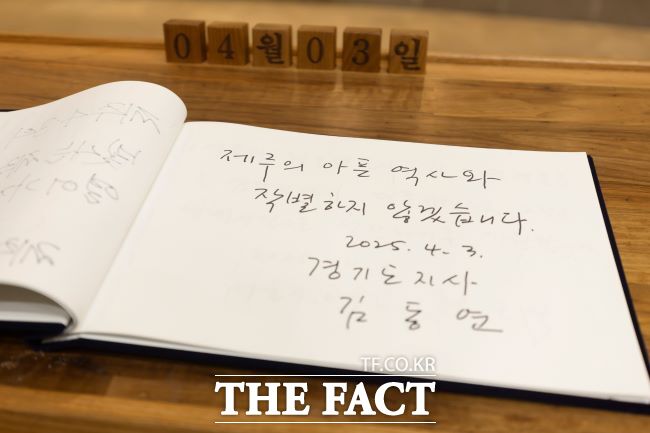 04월03일
제주의 아픈 역사와
작별하지 않겠습니다.
2025. 4. 3.
경기도지사
김동연
TF.CO.KR
THE FACT